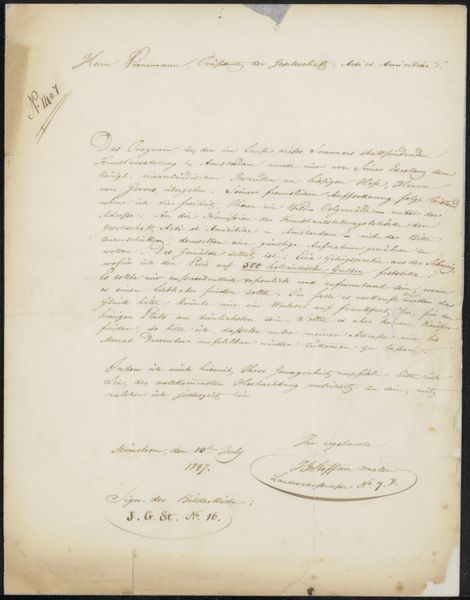 Herrn Wienemann, Präsident der Gesellschaft: Arti et Amicitiae!
No 1407
Das Program in der im Laufe dieses Sommers stattfindenden
Kunstausstellung in Amsterdam wurde mir von Seiner Excellenz dem
königl. niederländischen Gesandten am hiesigen Hofe, Herrn
von übergeben. Seiner freundlichen Aufforderung folge leistend
nehme ich die Freiheit, Ihnen ein Bild Oelgemälde unter der
Adresse: An die Kommission der Kunstausstellungsbehörde der
Gesellschaft Arti et Amicitiae in Amsterdam mit der Bitte
zuzuschicken, demselben eine günstige Aufnahme gewähren zu
wollen. Das Gemälde selbst ist: Eine Gebirgspartie aus der Schweiz,
wofür ich den Preis auf 500 holländische Gulden festsetze.
Es sollte mir außerordentlich erfreulich und aufmunternd sein, wenn
es einen Liebhaber finden sollte. Im falle es verkauft werden das
Glück hätte, könnte mir ein Wechsel auf Frankfurt für den
hiesigen Platz am dienlichsten sein. Sollte es aber keinen Käufer
finden, so bitte ich, dasselbe unter meiner Adresse mir bis
Monat December unfehlbar wieder zukommen zu lassen.
Indem ich mich hiemit Ihrer Gewogenheit empfehle, bitte ich
Sie, der vollkommensten Hochachtung versichert zu sein, mit
welcher ich jederzeit bin
München, den 10ten July
1847.
Ihr ergebenster
J G Steffan maler
No 7.
Sign. der Bilderkiste:
J. G. St. No 16.